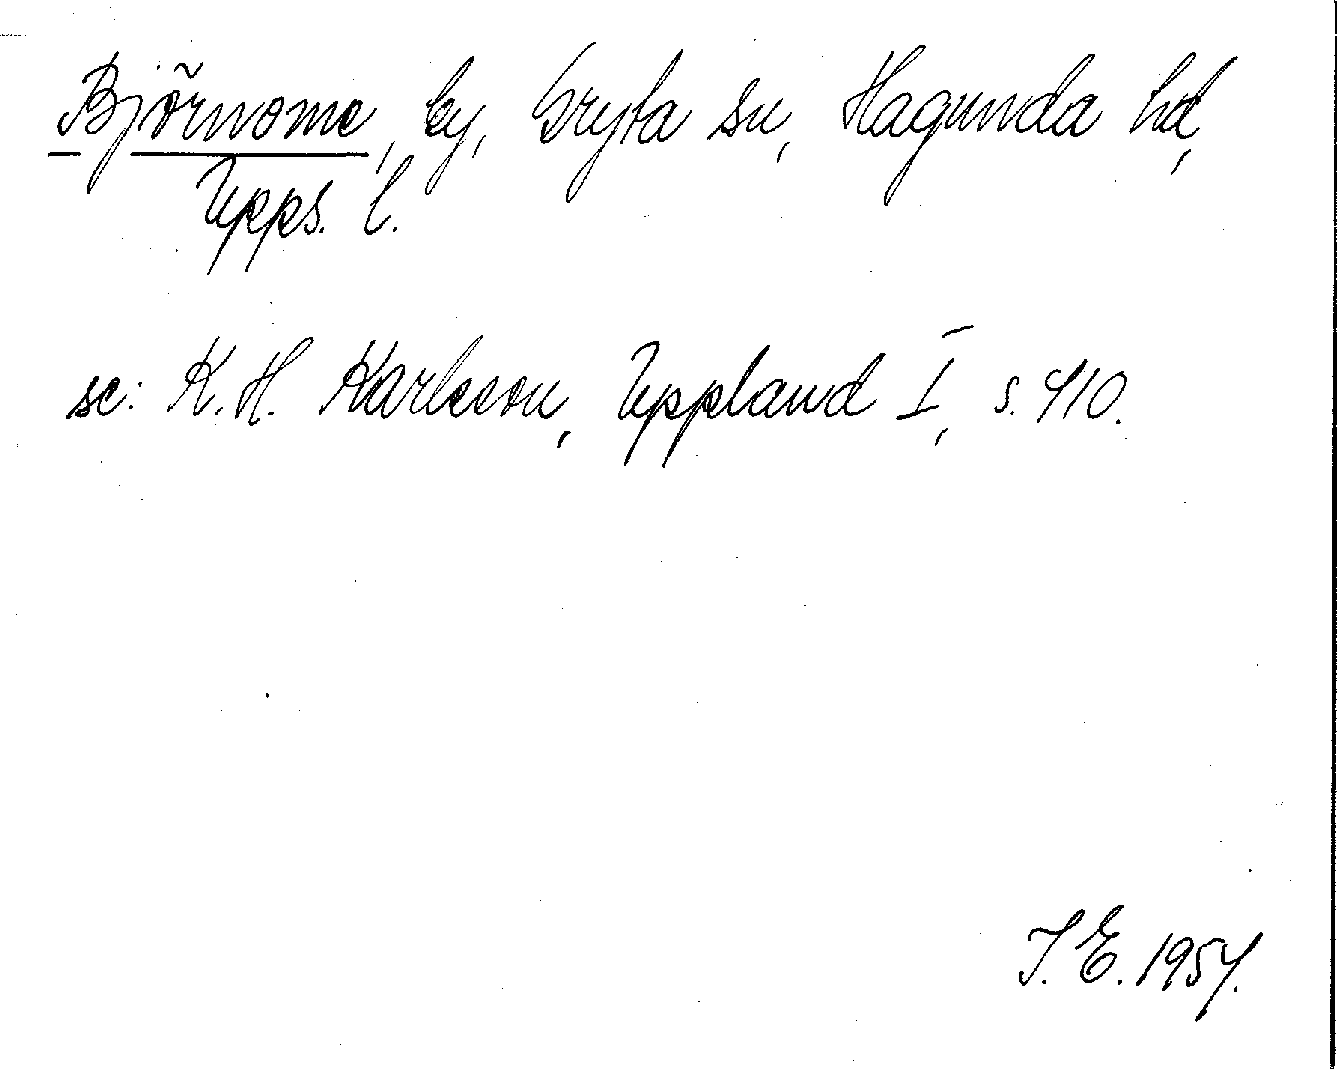 Björnome, by, Gryta sn, Hagunda hd,
Upps. l.
se: K. H. Karlsson, Uppland I, s. 410.
I. E. 1954.